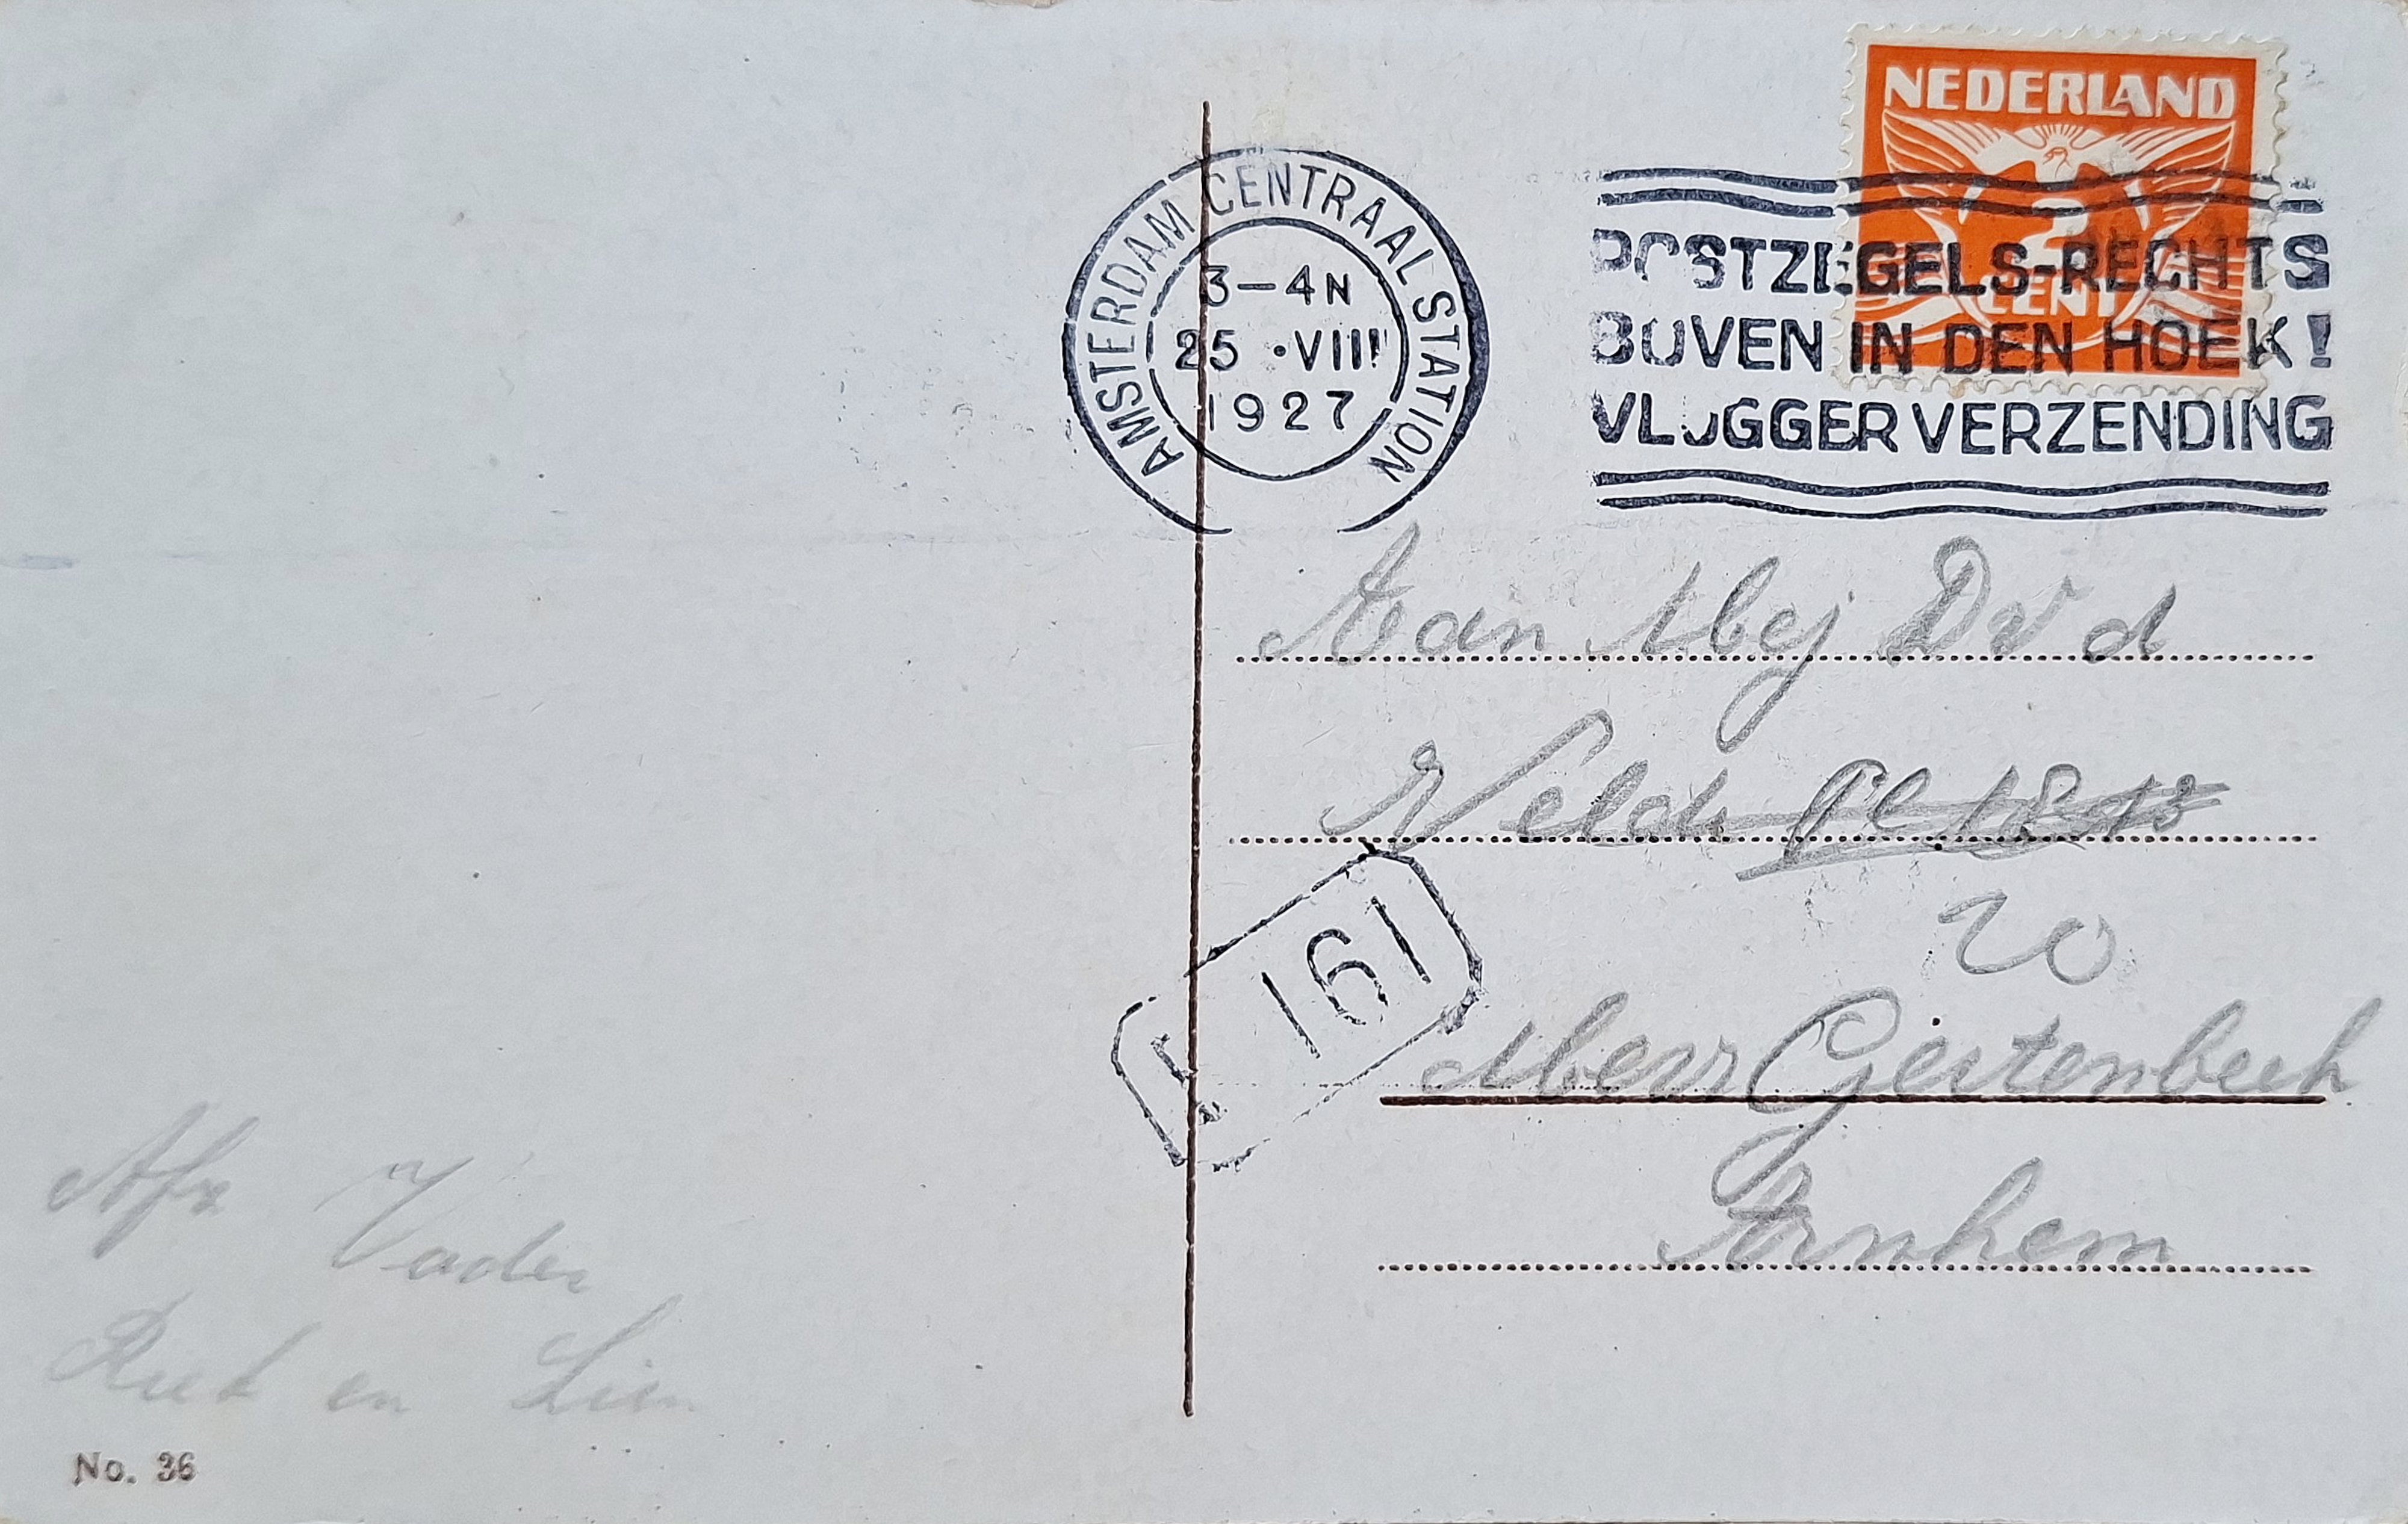 NEDERLAND
2
CENT
AMSTERDAM CENTRAAL STATION
3-4N
25 •VIII
1927
POSTZEGELS-RECHTS
BOVEN IN DEN HOEK!
VLUGGER VERZENDING
Aan Mej D v d
Velde Pl
161
20
Gertenbeek
Arnhem
Afz Vader
Riet en Lien
No. 36